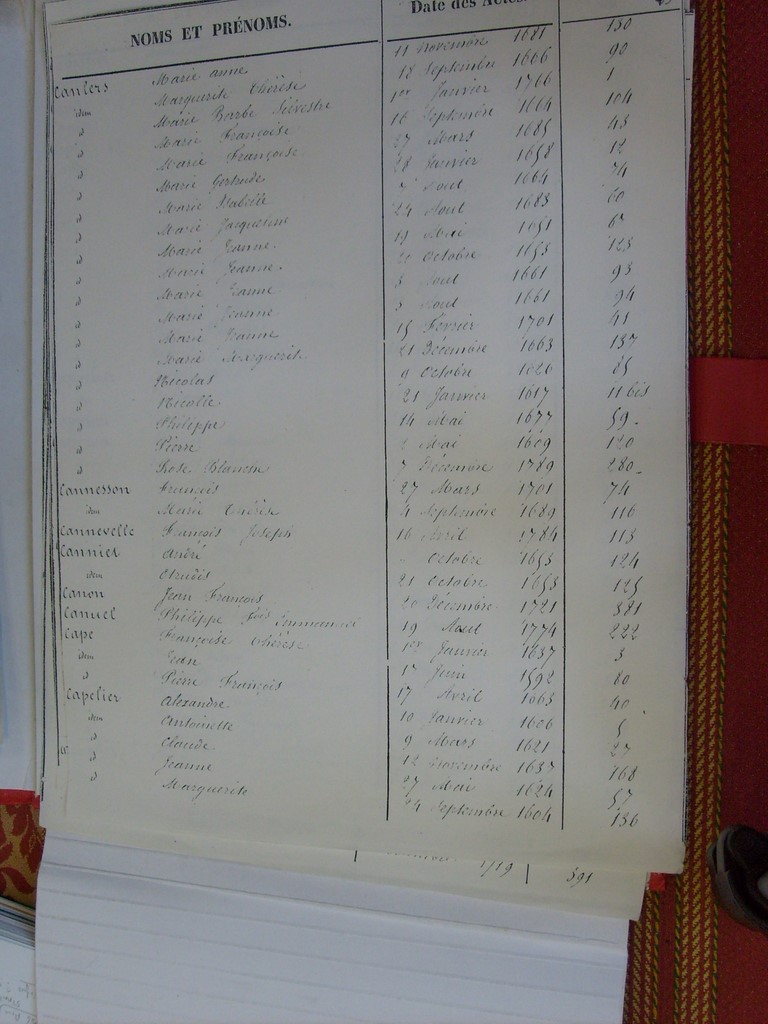 NOMS ET PRÉNOMS. Date des Actes. 45
Canlers Marie Anne 11 Novembre 1681 130
idem Marguerite Thérèse 18 Septembre 1666 90
d Marie Barbe Silvestre 1er Janvier 1766 1
d Marie Françoise 16 Septembre 1664 104
d Marie Françoise 27 Mars 1685 43
d Marie Gertrude 28 Janvier 1658 12
d Marie Isabelle 7 Aout 1664 74
d Marie Jacqueline 24 Aout 1683 60
d Marie Jeanne 19 Mai 1651 67
d Marie Jeanne 20 Octobre 1653 123
d Marie Jeanne 3 Aout 1661 93
d Marie Jeanne 3 Aout 1661 94
d Marie Jeanne 15 Février 1701 41
d Marie Marguerite 21 Décembre 1663 137
d Nicolas 9 Octobre 1626 85
d Nicolle 21 Janvier 1617 11 bis
d Philippe 14 Mai 1677 59-
d Pierre 2 Mai 1609 120
d Rose Blanche 7 Décembre 1789 280-
Cannesson François 27 Mars 1701 74
idem Marie Thérèse 4 Septembre 1689 116
Cannevelle François Joseph 16 Avril 1784 113
Canniet André - Octobre 1653 124
idem 21 Octobre 1653 125
Canon Jean François 20 Décembre 1721 381
Canuel Philippe Fois Emmanuel 19 Aout 1774 222
Cape Françoise Thérèse 1er Janvier 1637 3
idem Jean 17 Juin 1592 80
d Pierre François 17 Avril 1663 40
Capelier Alexandre 10 Janvier 1606 5
idem Antoinette 9 Mars 1621 27
d Claude 12 Novembre 1637 168
d Jeanne 27 Mai 1624 57
d Marguerite 24 Septembre 1604 136
1719 391